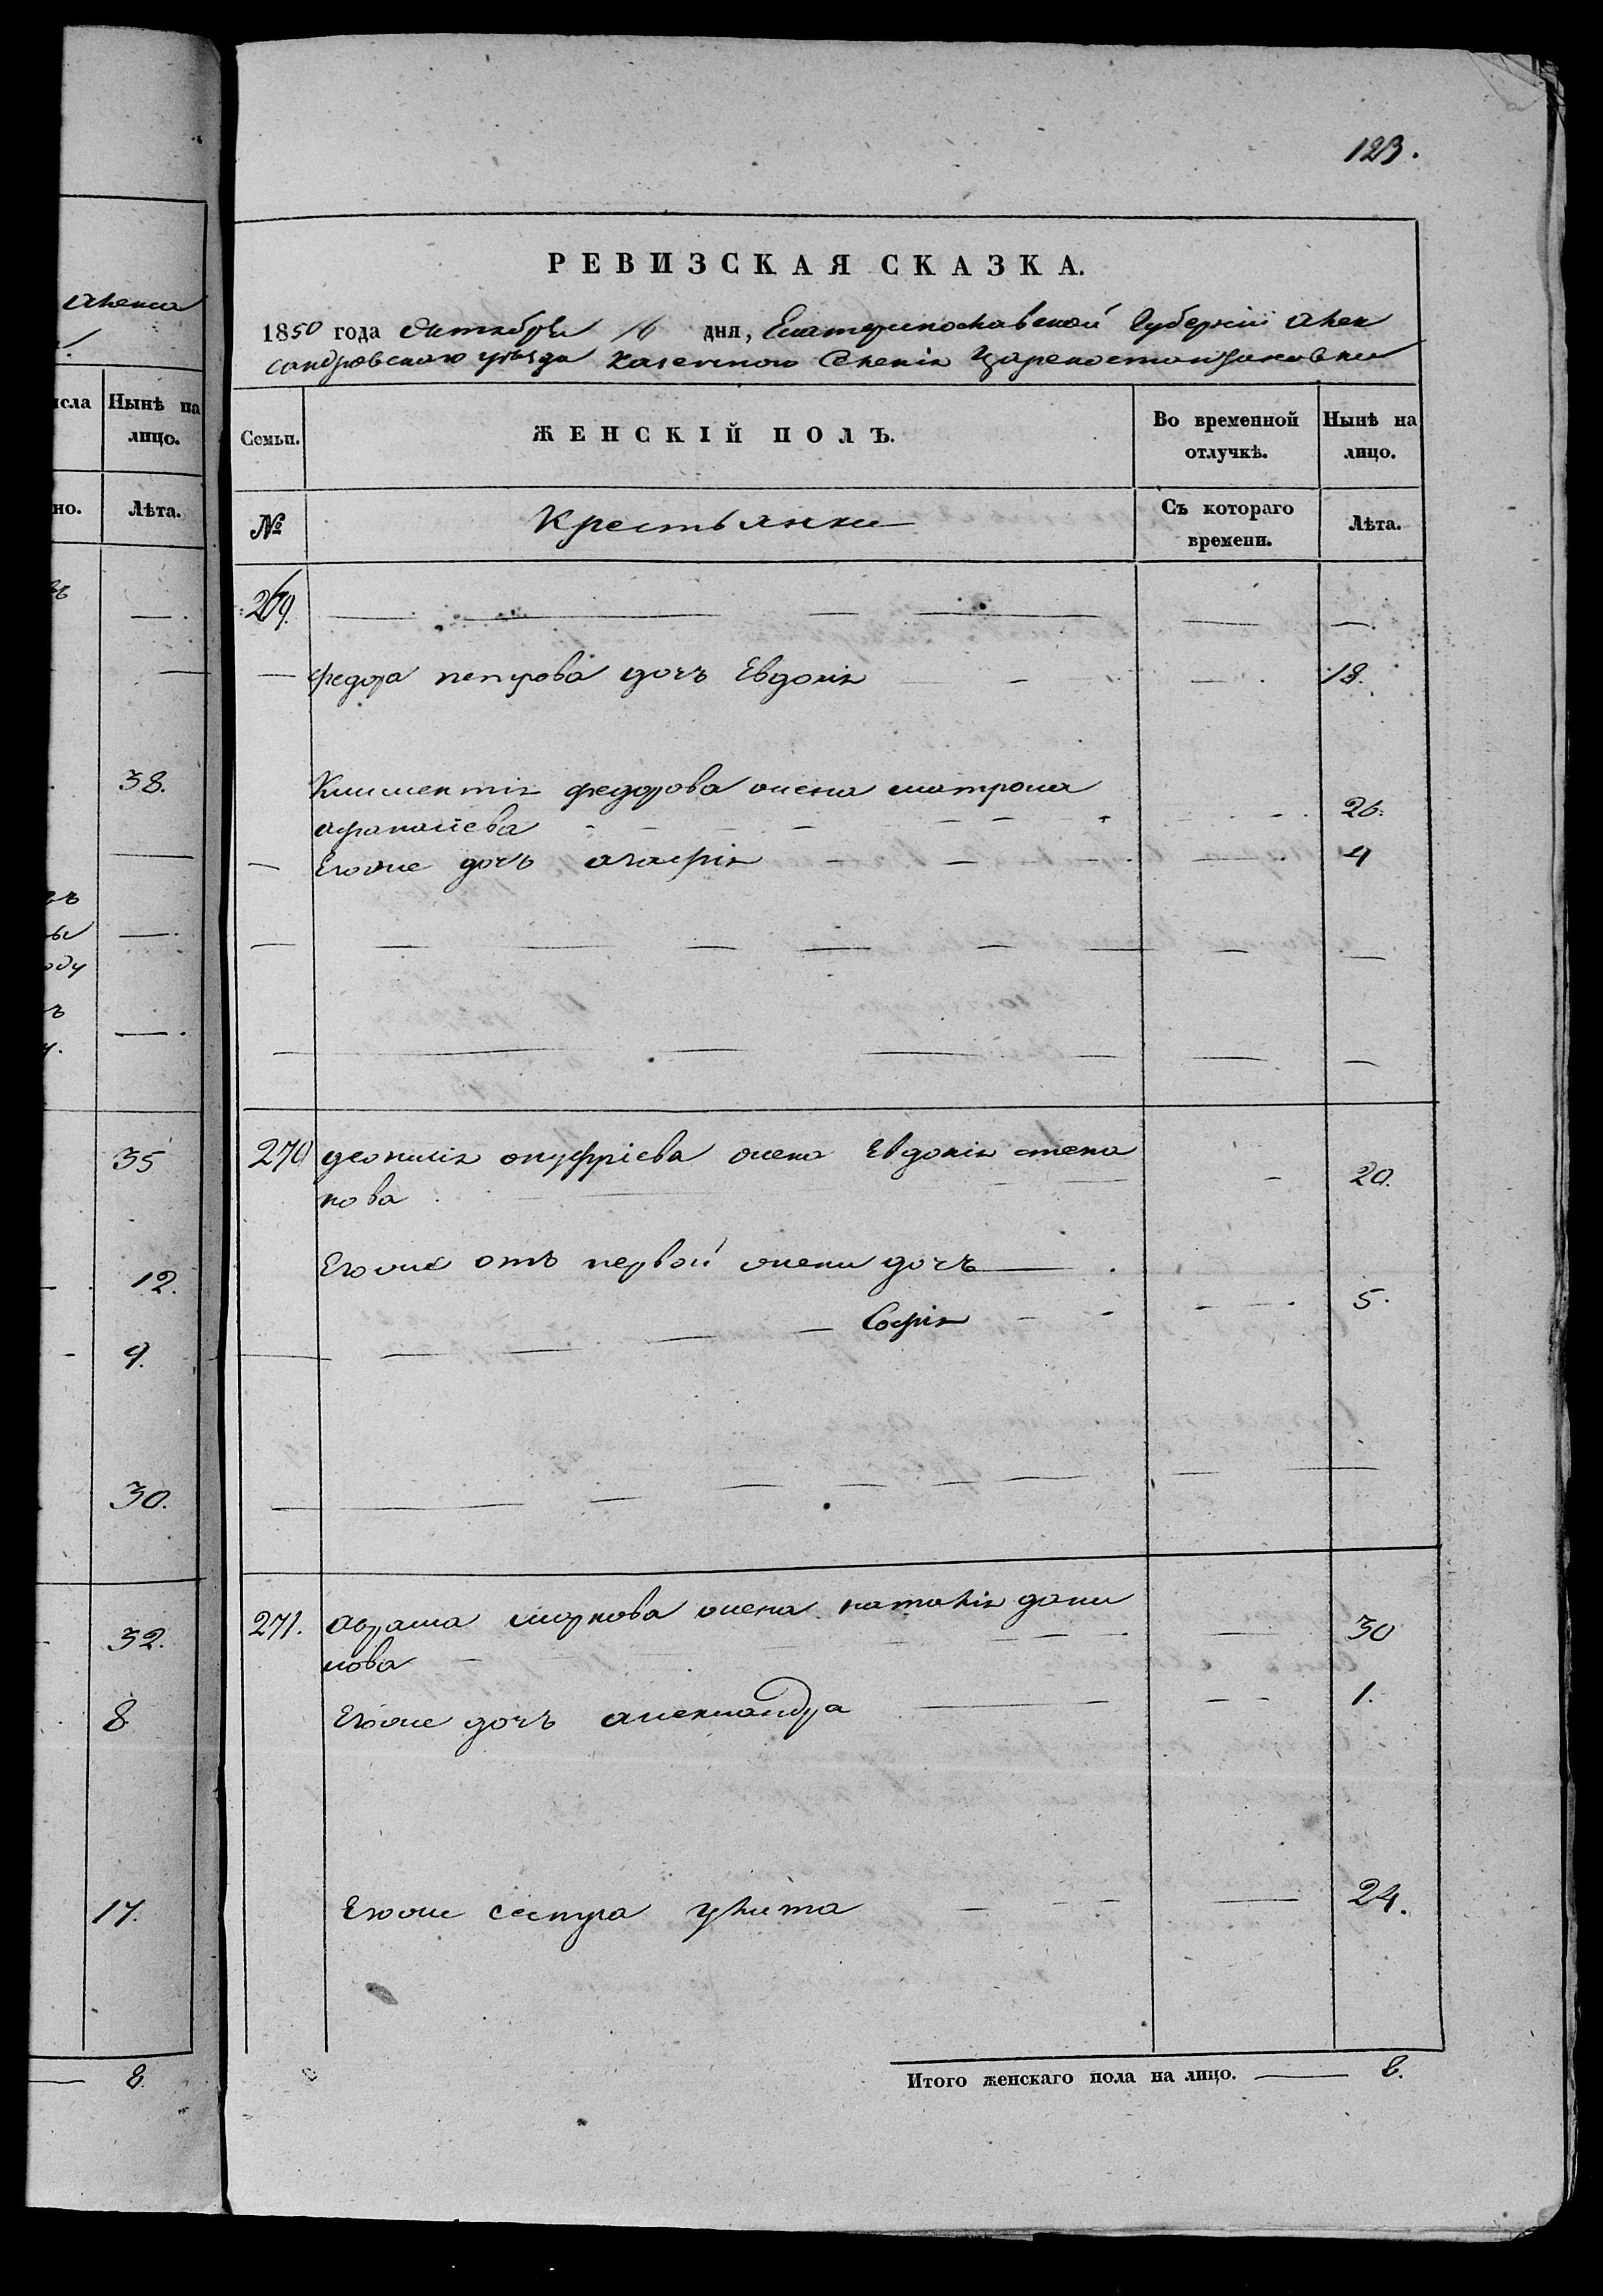 Алекса
исла
Нынѣ на
лицо.
но.
Лѣта.
38.
ы
оду
35
12.
9.
30.
32.
8
17.
8.
123.
РЕВИЗСКАЯ СКАЗКА.
1850 года Октября 16 дня, Екатеринославской Губерніи Алек
сандровскаго уѣзда Казенного Селенія Цареконстантиновки
Семьи.
ЖЕНСКІЙ ПОЛЪ.
Во временной
отлучкѣ.
Нынѣ на
лицо.
№
Крестьянки
Съ котораго
времени.
Лѣта.
269.
Федора петрова дочь Евдокія 18.
Климентія федорова жена матрона
афанасіева 26.
Егоже дочь агафія 4
270 деонисія онуфріева жена Евдокія степа
нова 20.
Егоже отъ первой жены дочь
Софія 5.
271. аврама маркова жена наталія дани
лова 30
Егоже дочь александра 1.
Егоже сестра улита 24.
Итого женскаго пола на лицо. 8.